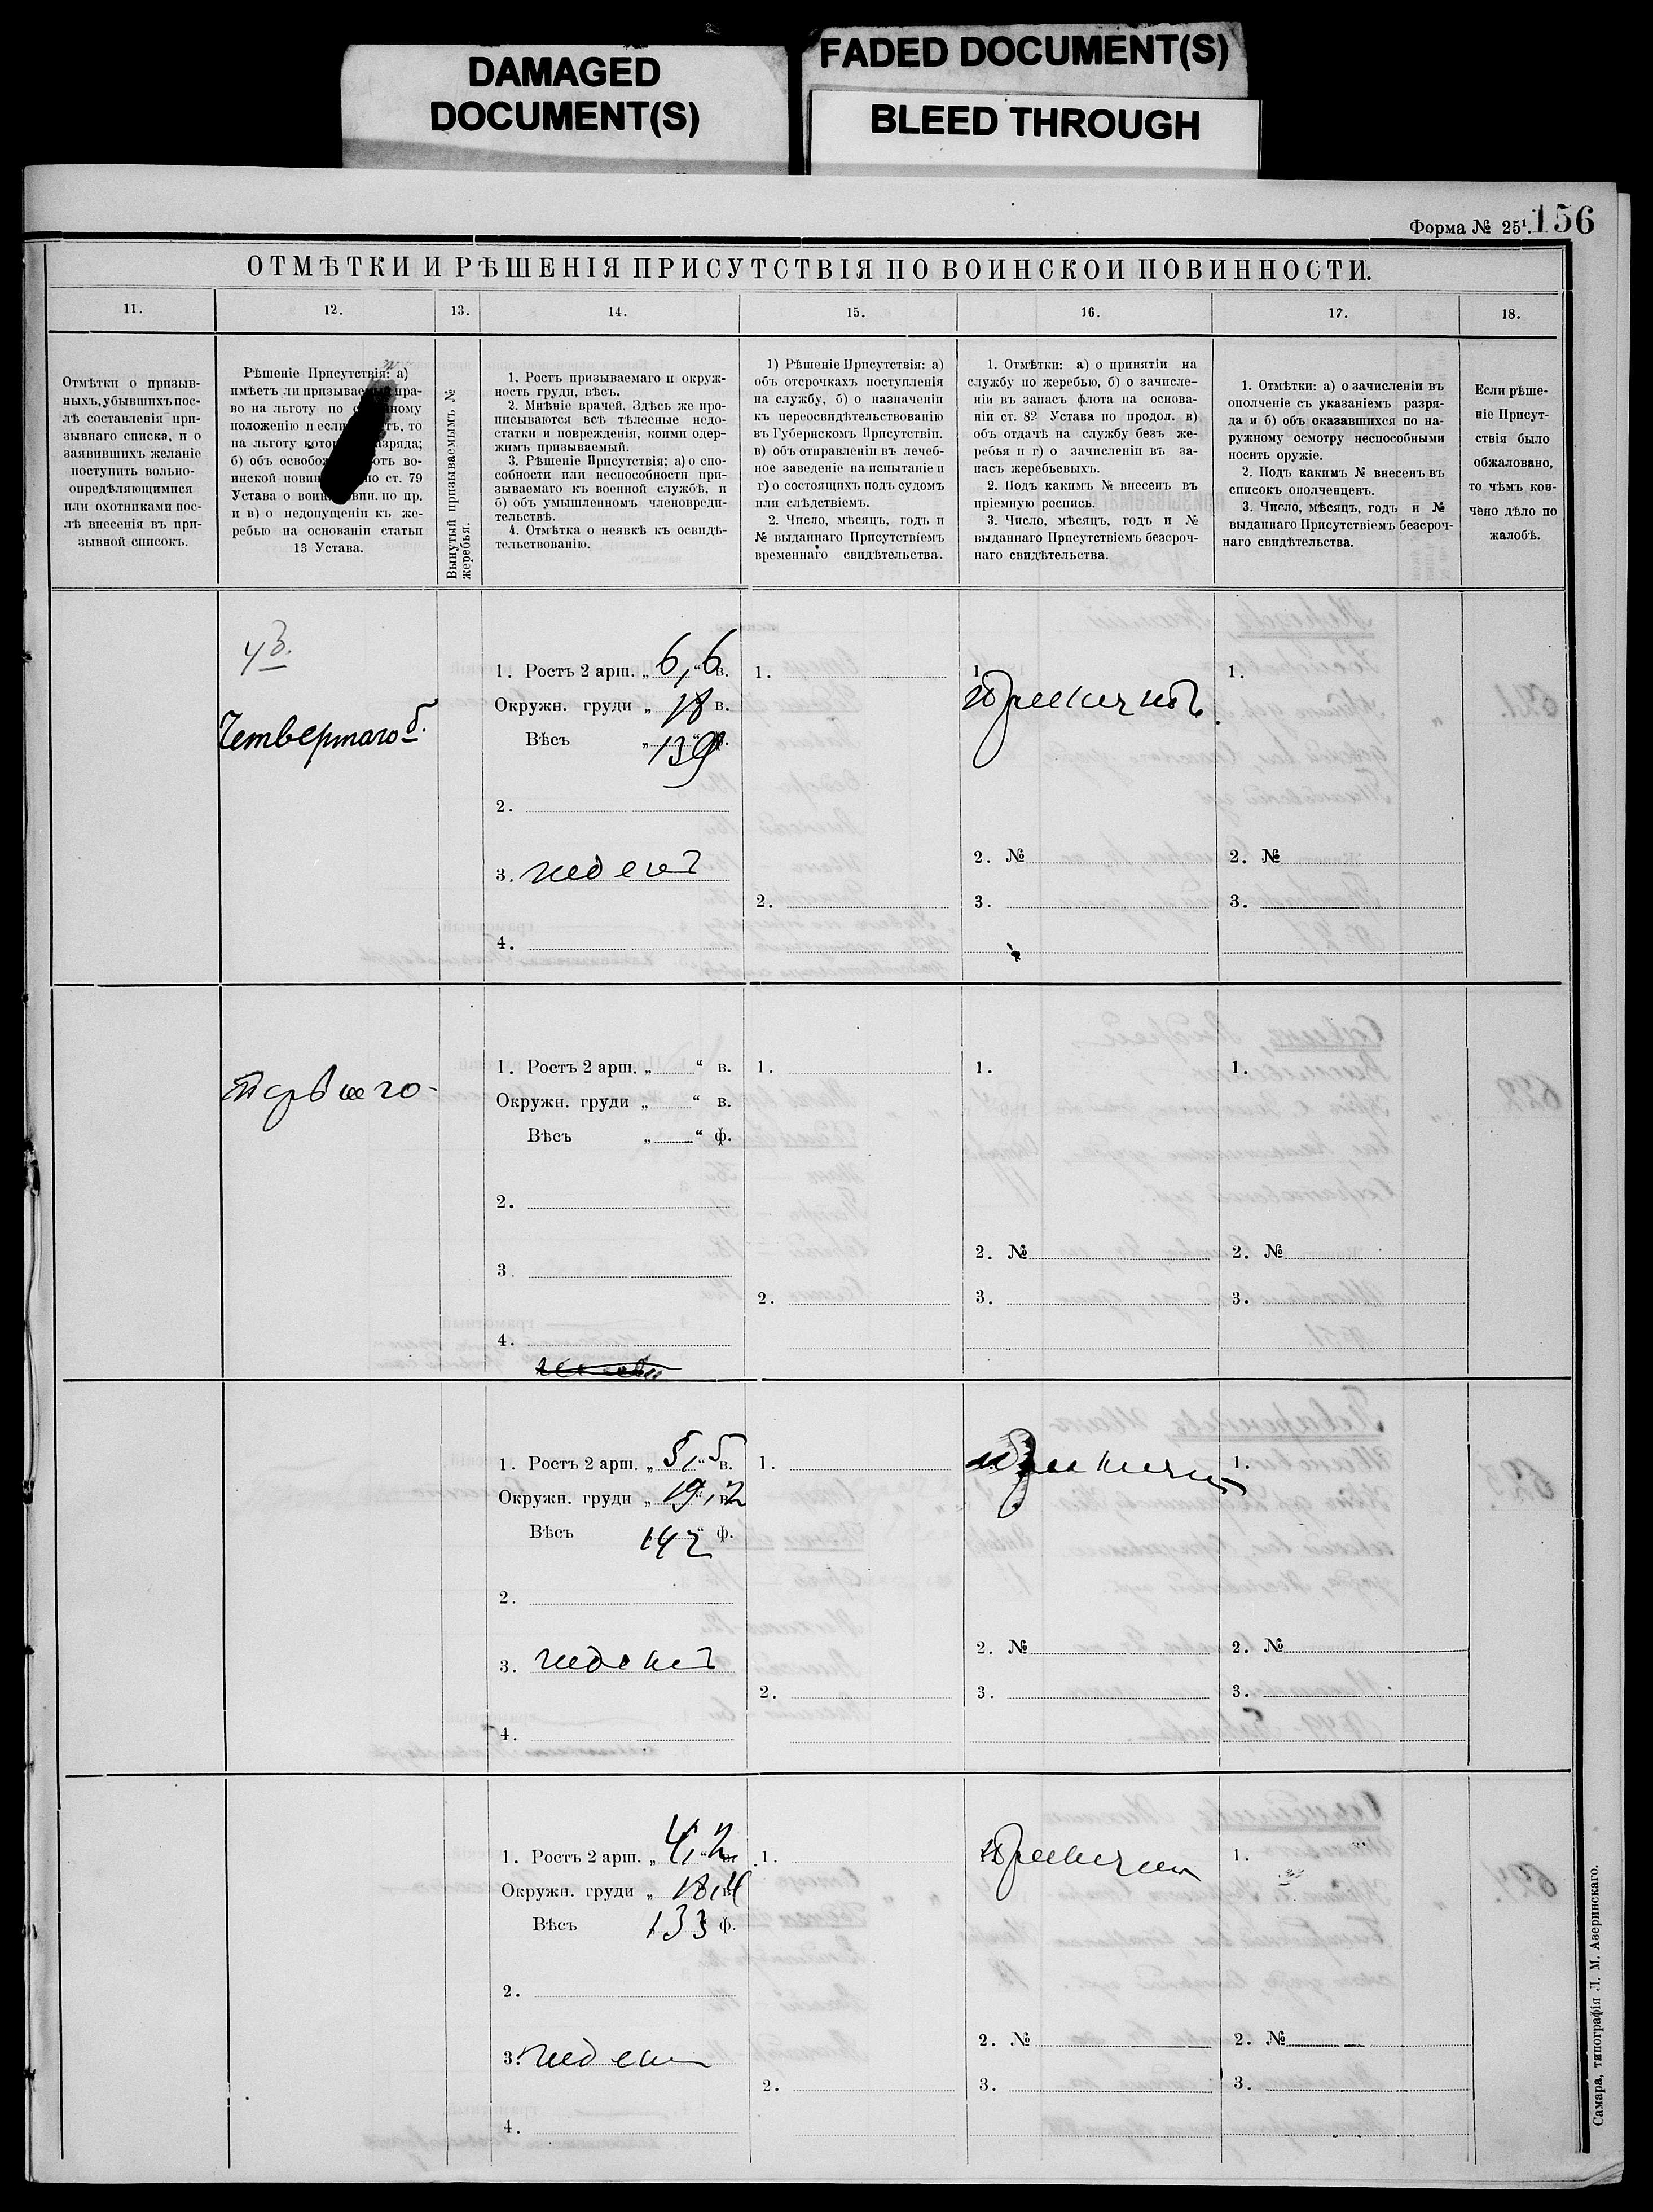 DAMAGED
DOCUMENT(S)
FADED DOCUMENT(S)
BLEED THROUGH
Форма № 25¹.
156
ОТМѢТКИ И РѢШЕНІЯ ПРИСУТСТВІЯ ПО ВОИНСКОЙ ПОВИННОСТИ.
11.
12.
13.
14.
15.
16.
17.
18.
Отмѣтки о призыв-
ныхъ, убывшихъ пос-
лѣ составленія при-
зывнаго списка, и о
заявившихъ желаніе
поступить вольно-
опредѣляющимися
или охотниками пос-
лѣ внесенія въ при-
зывной списокъ.
Рѣшеніе Присутствія: а)
имѣетъ ли призывае пра-
во на льготу по ному
положенію и если тъ, то
на льготу котор азряда;
б) объ освобож отъ во-
инской повин по ст. 79
Устава о воин вин. по пр.
и в) о недопущеніи къ же-
ребью на основаніи статьи
13 Устава.
Вынутый призываемымъ №
жеребья.
1. Ростъ призываемаго и окруж-
ность груди, вѣсъ.
2. Мнѣніе врачей. Здѣсь же про-
писываются всѣ тѣлесные недо-
статки и поврежденія, коими одер-
жимъ призываемый.
3. Рѣшеніе Присутствія; а) о спо-
собности или неспособности при-
зываемаго къ военной службѣ, и
б) объ умышленномъ членовреди-
тельствѣ.
4. Отмѣтка о неявкѣ къ освидѣ-
тельствованію.
1) Рѣшеніе Присутствія: а)
объ отсрочкахъ поступленія
на службу, б) о назначеніи
къ переосвидѣтельствованію
въ Губернскомъ Присутствіи.
в) объ отправленіи въ лечеб-
ное заведеніе на испытаніе и
г) о состоящихъ подъ судомъ
или слѣдствіемъ.
2. Число, мѣсяцъ, годъ и
№ выданнаго Присутствіемъ
временнаго свидѣтельства.
1. Отмѣтки: а) о принятіи на
службу по жеребью, б) о зачисле-
ніи въ запасъ флота на основа-
ніи ст. 82 Устава по продол. в)
объ отдачѣ на службу безъ же-
ребья и г) о зачисленіи въ за-
пасъ жеребьевыхъ.
2. Подъ какимъ № внесенъ въ
пріемную роспись.
3. Число, мѣсяцъ, годъ и №
выданнаго Присутствіемъ безсроч-
наго свидѣтельства.
1. Отмѣтки: а) о зачисленіи въ
ополченіе съ указаніемъ разря-
да и б) объ оказавшихся по на-
ружному осмотру неспособными
носить оружіе.
2. Подъ какимъ № внесенъ въ
списокъ ополченцевъ.
3. Число, мѣсяцъ, годъ и №
выданнаго Присутствіемъ безсроч-
наго свидѣтельства.
Если рѣше-
ніе Присут-
ствія было
обжаловано,
то чѣмъ кон-
чено дѣло по
жалобѣ.
Четвертаго
1. Ростъ 2 арш. „ 6,6 в.
Окружн. груди „ 18 в.
Вѣсъ „ 139
2.
3. годенъ
4.
1.
2.
1. принятъ
2. №
3.
1.
2. №
3.
Перваго
1. Ростъ 2 арш. „ “ в.
Окружн. груди „ “ в.
Вѣсъ „ “ ф.
2.
3.
4.
1.
2.
1.
2. №
3.
1.
2. №
3.
1. Ростъ 2 арш. „ 5,5 в.
Окружн. груди „ 19,2 в.
Вѣсъ 142 ф.
2.
3. годенъ
4.
1.
2.
принятъ
2. №
3.
1.
2. №
3.
1. Ростъ 2 арш. „ 4,2 в.
Окружн. груди „ 18,4 в.
Вѣсъ 133 ф.
2.
3. годенъ
4.
1.
2.
принятъ
2. №
3.
1.
2. №
3.
Самара, типографія Л. М. Азеринскаго.